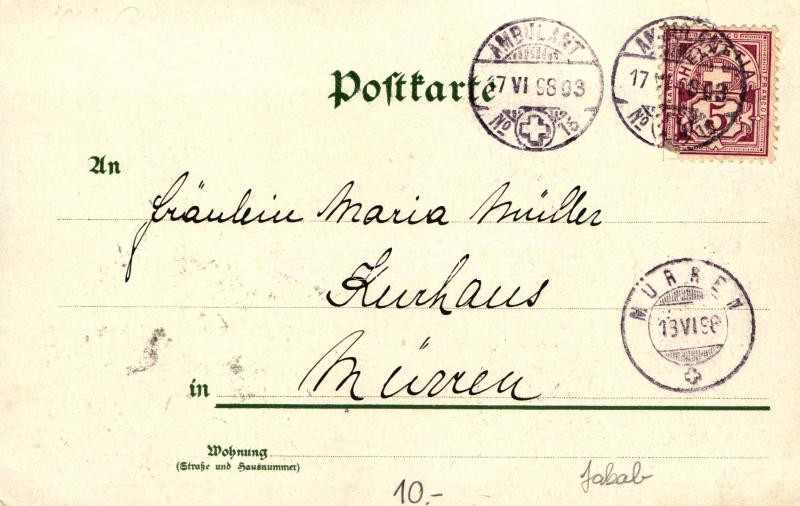 AMBULANT
17 VI 98 03
No 13
17
No
HELVETIA
5
Postkarte
An
Fräulein Maria Müller
Kurhaus
MÜRREN
18 VI 98
in Mürren
Wohnung
(Straße und Hausnummer)
10.-
Jakab